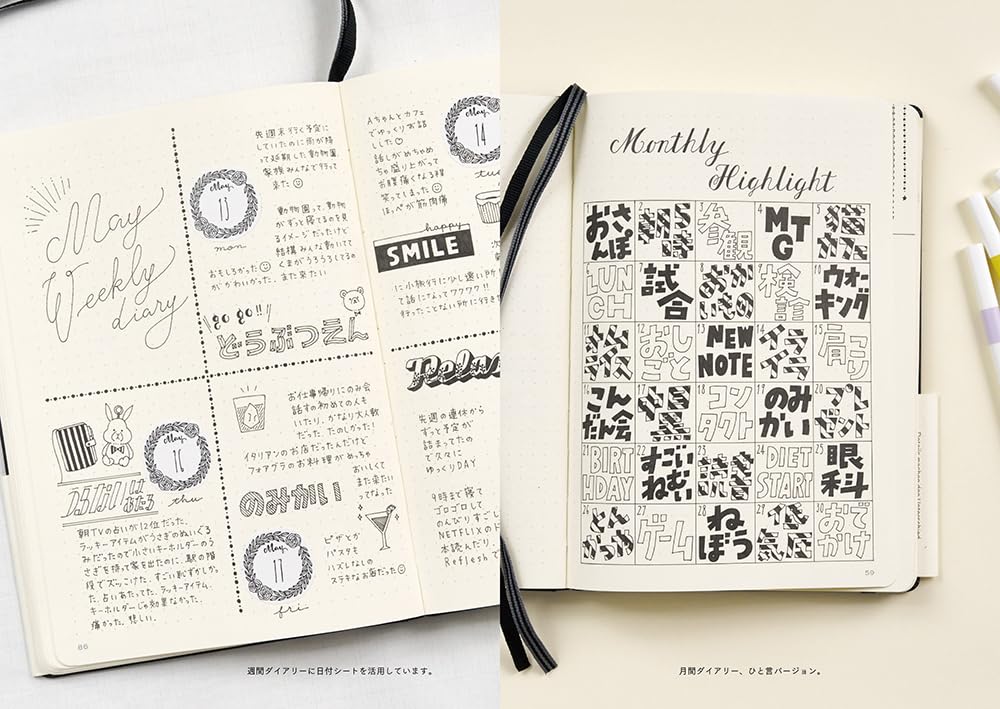 May
Weekly
diary
May
13
mon
先週末行く予定に
していたのに雨が降
って延期した動物園
家族みんなで行って
来た
動物園って、動物
がずっと寝てるのを見
るイメージだったけど
結構みんな動いてて
くまがうろうろしてるの
おもしろかった
がかわいかった。
また来たい
go go!!
どうぶつえん
Aちゃんとカフェ
でゆっくりお話
した
話しがめちゃめ
ちゃ盛り上がって
お腹痛くなる程
笑ってしまった
ほっぺが筋肉痛
May
14
tue
happy
SMILE
に小旅行に少し遠い所
って話になってワクワク!!
行ったことない所に行き
May
16
thu
うらない は
あたる
朝TVの占いが12位だった。
ラッキーアイテムがうさぎのぬいぐる
みだったので小さいキーホルダーのう
さぎを持って家を出たのに、駅の階
段でズッこけた。すごい恥ずかしかっ
た。占いあたってた。ラッキーアイテム、
キーホルダーじゃ効果なかった。
痛かった。悲しい。
66
お仕事帰りにのみ会
話すの初めての人も
いたり、かなり大人数
だった。たのしかった!
イタリアンのお店だったんだけど
フォアグラのお料理がめっちゃ
おいしくて
また来たい
ってなった
のみかい
May
17
fri
ピザとか
パスタも
ハズレなしの
ステキなお店だった
Relax
先週の連休から
ずっと予定が
詰まってたの
でスロースに
ゆっくりDAY
9時まで寝て
ゴロゴロして
のんびりすごし
NETFLIXのド
本読んだり
Refresh
週間ダイアリーに日付シートを活用しています。
Monthly
Highlight
1 おさんぽ
2 朝寝坊
3 参観
4 MTG
5 猫カフェ
6 LUNCH
7 試合
8 おかいもの
9 検診
10 ウォーキング
12 おしごと
13 NEW NOTE
14 イライラ
15 肩コリ
16 こんだん会
18 コンタクト
19 のみかい
20 プレゼント
21 BIRTHDAY
22 すごいねむい
23 読書
24 DIET START
25 眼科
26 とんかつ
27 ゲーム
28 ねぼう
29 低気圧
30 おでかけ
59
月間ダイアリー、ひと言バージョン。